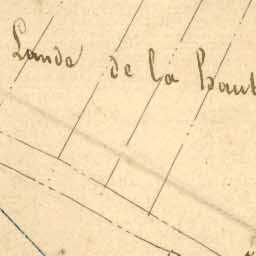 Lande de la haut